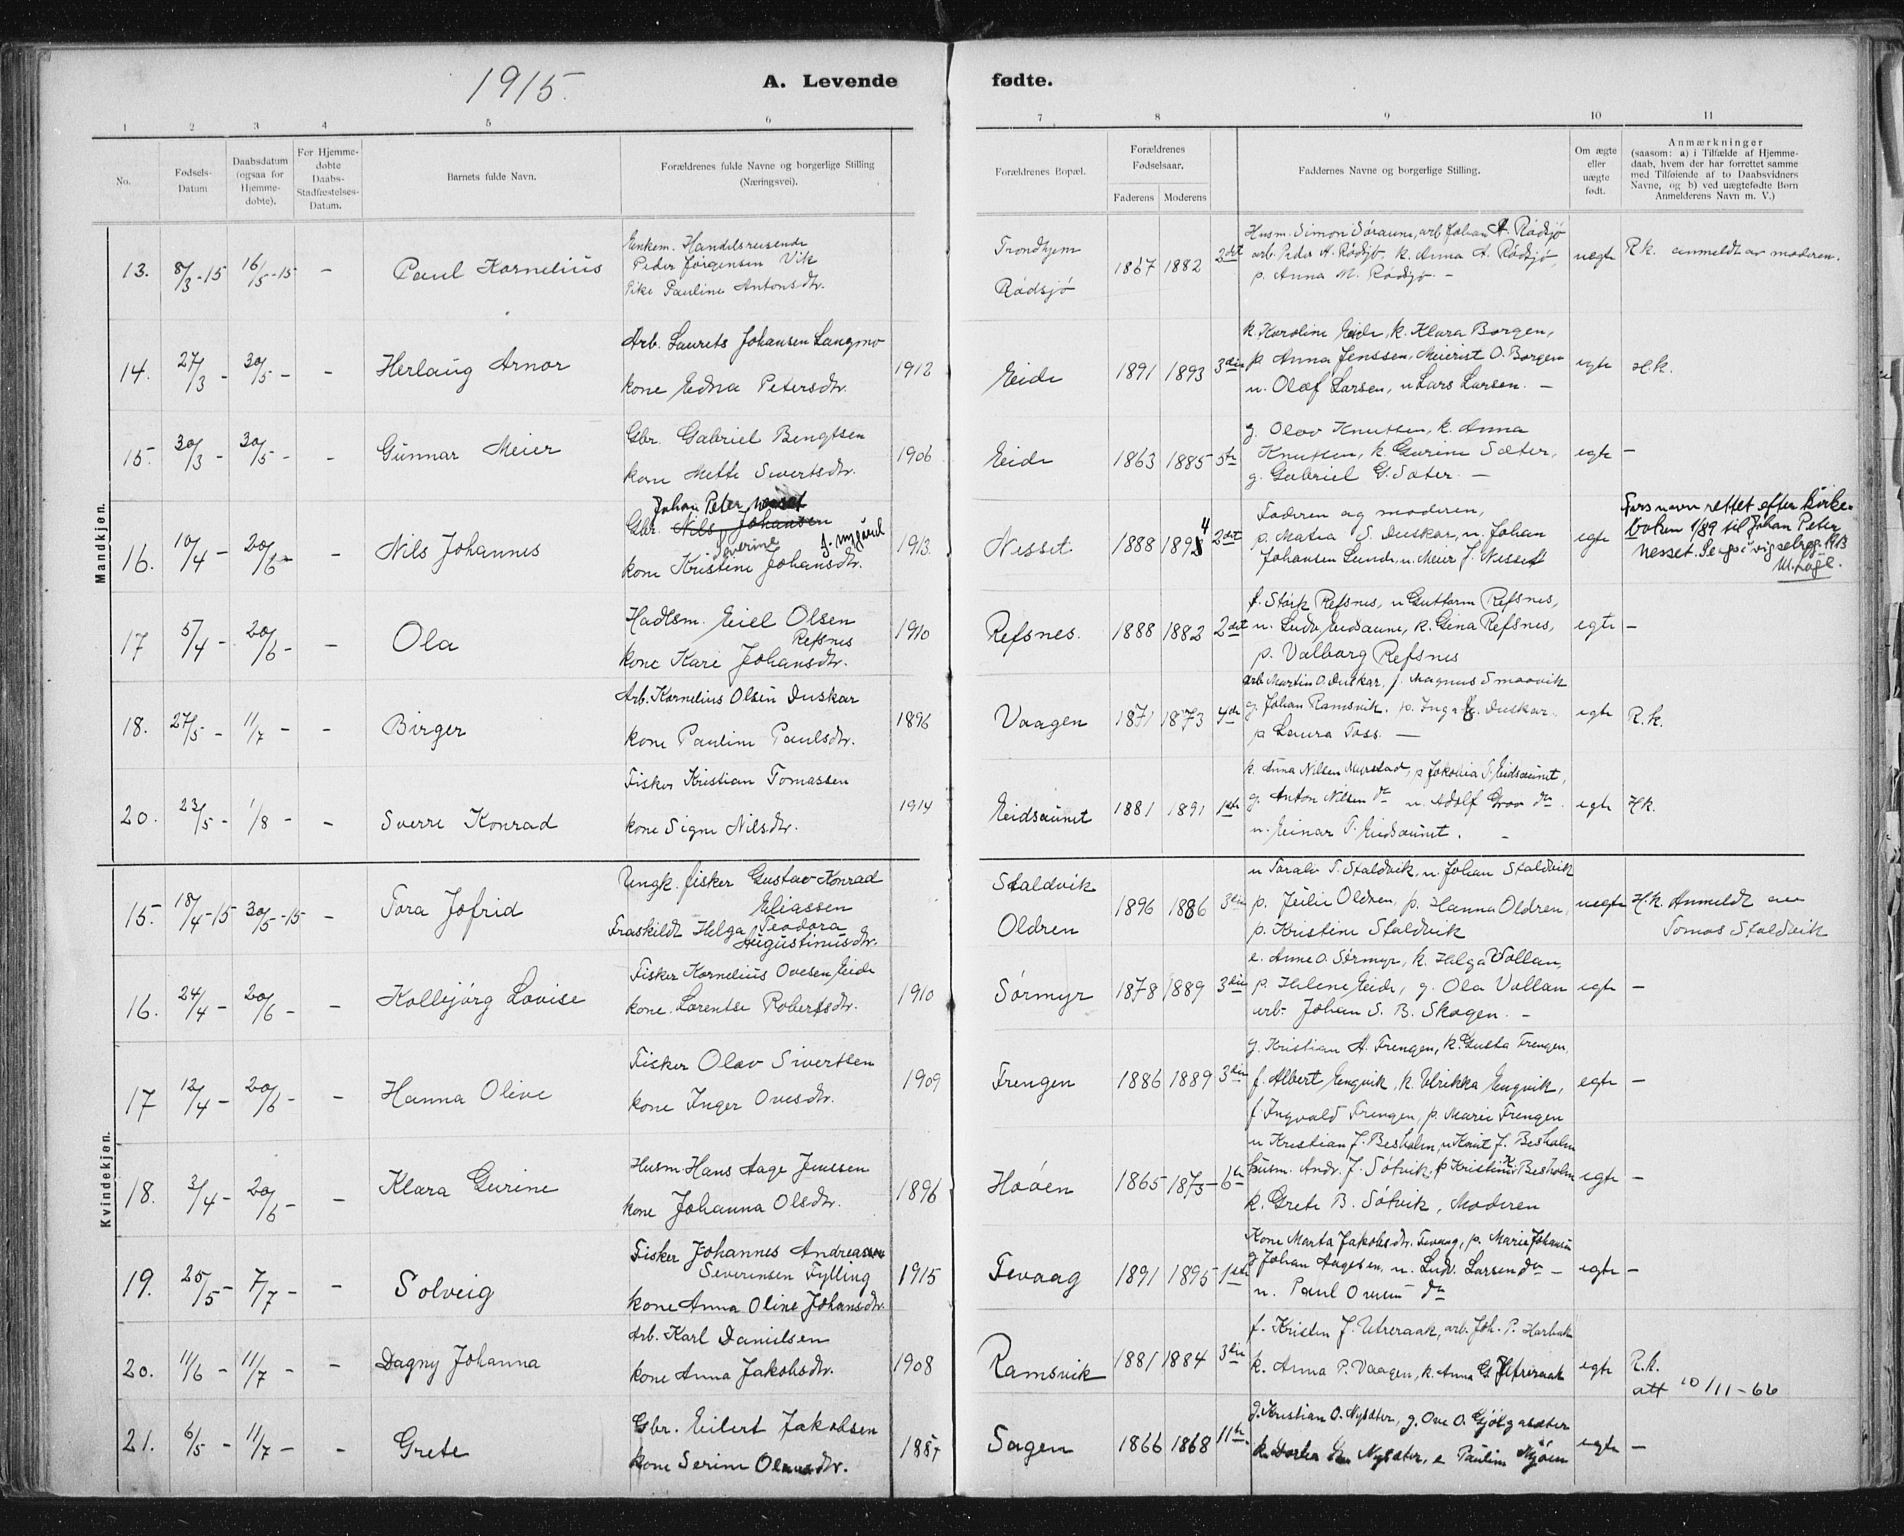 1915.
A. Levende fødte.
1 2 3 4 5 6 7 8 9 10 11
No.
Fødsels-Datum
Daabsdatum (ogsaa for Hjemme-døbte).
For Hjemme-døbte Daabs-Stadfæstelses-Datum.
Barnets fulde Navn.
Forældrenes fulde Navne og borgerlige Stilling (Næringsvei).
Forældrenes Bopæl.
Forældrenes Fødselsaar.
Faderens Moderens
Faddernes Navne og borgerlige Stilling.
Om ægte eller uægte født.
Anmærkninger
(saasom: a) i Tilfælde af Hjemme-
daab, hvem der har forrettet samme
med Tilføiende af to Daabsvidners
Navne, og b) ved uægtefødte Børn
Anmelderens Navn m. V.)
Mandkjøn.
13. 8/3-15 16/5-15 - Paul Kornelius
Enkem. Handelsreisende
Peder Jørgensen Vik
Pike Pauline Antonsdtr.
Trondhjem
Rødsjø
1867 1882 2det
Husm. Simon Søraune, arb. Johan A. Rødsjø
arb. Peder A. Rødsjø, k. Anna A. Rødsjø,
p. Anna M. Rødsjø. -
uegte
R.k. anmeldt av moderen.
14. 27/3 - 30/5 - - Herlaug Arnor
Arb. Laurits Johansen Langmo
kone Edna Petersdtr.
1912
Eide
1891 1893 3die
k. Karoline Eide, k. Klara Borgen,
p. Anna Jenssen, Meierist O. Borgen
u. Olaf Larsen, u Lars Larsen. -
egte
H.k.
15. 30/3 - 30/5 - - Gunnar Meier
Gbr. Gabriel Bengtsen
kone Mette Sivertsdtr.
1906
Eide
1863 1885 5te
g. Olav Knutsen, k. Anna
Knutsen, k. Gurine Sæter,
g. Gabriel G. Sæter. -
egte -
16. 10/4 - 20/6 - Nils Johannes
Johan Peter Nesset
Gbr. Nils Johansen
Severine J. nygård
kone Kristine Johansdtr.
1913
Nesset
1888 1894 2det
Faderen og moderen,
p. Matea S. Duskar, u. Johan
Johansen Lunde, u. Meier J. Nesset
egte
Fars navn rettet efter kirke-
boken 1/89 til Johan Peter
Nesset. Se også vigselreg. 1913
M. Løgl.
17 5/4 - 20/6 - - Ola
Hadlsm. Eiel Olsen
Refsnes
kone Kari Johansdtr.
1910
Refsnes.
1888 1882 2det
f. Stark Refsnes, u Guttorm Refsnes,
u. Ludv. Eidsaune, k. Gina Refsnes,
p. Valborg Refsnes
egte -
18. 27/5 - 11/7 - - Birger
Arb. Kornelius Olsen Duskar
kone Pauline Paulsdtr.
1896
Vaagen
1871 1873 4de
arb Martin O. Duskar, f. Magnus Smaavik
g. Johan Ramsvik. p. Inga K. Duskar.
p Laura Foss. -
egte
R.k.
20. 23/5 - 1/8 - - Sverre Konrad
Fisker Kristian Tomassen
kone Signe Nilsdtr.
1914
Eidsaunet
1881 1891 1ste
k. Anna Nilsen Myrstad, p Jakobia T. Eidsaunet,
g. Anton Nilsen do u. Adolf Grov do.
u. Einar T. Eidsaunet. -
egte
H.k.
Kvindekjøn.
15. 18/4-15 30/5-15 - Tora Jofrid
Ungk. fisker Gustav Konrad
Eliassen
Fraskildt Helga Teodora
Augustinusdtr.
Staldvik
Oldren
1896 1886 3die
u Toralv T. Staldvik, u. Johan Staldvik
p. Julie Oldren, p. Hanna Oldren,
p. Kristine Staldvik
uegte
H.k. Anmeldt av
Tomas Staldvik
16. 24/4 - 20/6 - - Kolbjørg Lovise
Fisker Kornelius Ovesen Eide
kone. Lorentse Robertsdtr.
1910
Sørmyr
1878 1889 3die
e. Anne O. Sørmyr, k. Helga Vollan,
p. Helene Eide, g. Ola Vollan
arb. Johan S. B. Skogen. -
egte -
17 12/4 - 20/6 - - Hanna Olive
Fisker Olav Sivertsen
kone Inger Ovesdtr.
1909
Frengen
1886 1889 3die
g. Kristian A. Frengen, k. Gusta Frengen,
f. Albert Engvik, k Ulrikka Engvik,
f. Ingvald Frengen, p. Marie Frengen
egte -
18. 3/4 - 20/6 - - Klara Gurine
Husm. Hans Aage Jenssen
kone Johanna Olsdtr.
1896
Høøen
1865 1875 - 6te
u Kristian J. Besholm, u Knut J. Besholm
husm. Andr. J. Søtvik, p Kristine K Besholm
k. Grete B. Søtvik, Moderen
egte -
19. 25/5 - 7/7 - - Solveig
Fisker Johannes Andreassen
Severinsen Fylling
kone Anna Oline Johansdtr.
1915
Fevaag
1891 1895 - 1ste
Kone Marta Jakobsdtr. Fevaag, p. Marie Johansen
g Johan Aagesen, u. Ludv. Larsen do -
u. Paul Ovesen do
egte -
20. 11/6 - 11/7 - - Dagny Johanna
Arb. Karl Danielsen
kone Anna Jakobsdtr.
1908
Ramsvik
1881 1884 3die
f. Kristen J. Utreraak, arb. Joh. P. Harbak
k. Anna P. Vaagen, k. Anna G. Utreraak
egte
R.k.
att 10/11-66
21. 6/5 - 11/7 - - Grete
Gbr. Eilert Jakobsen
kone Serine Olausdtr.
1887
Sagen
1866 1868 11te
g. Kristian O. Nysæter, g. Ove O. Gjølgasæter
k. Dorte Nysæter, e Pauline Mjøen
egte -